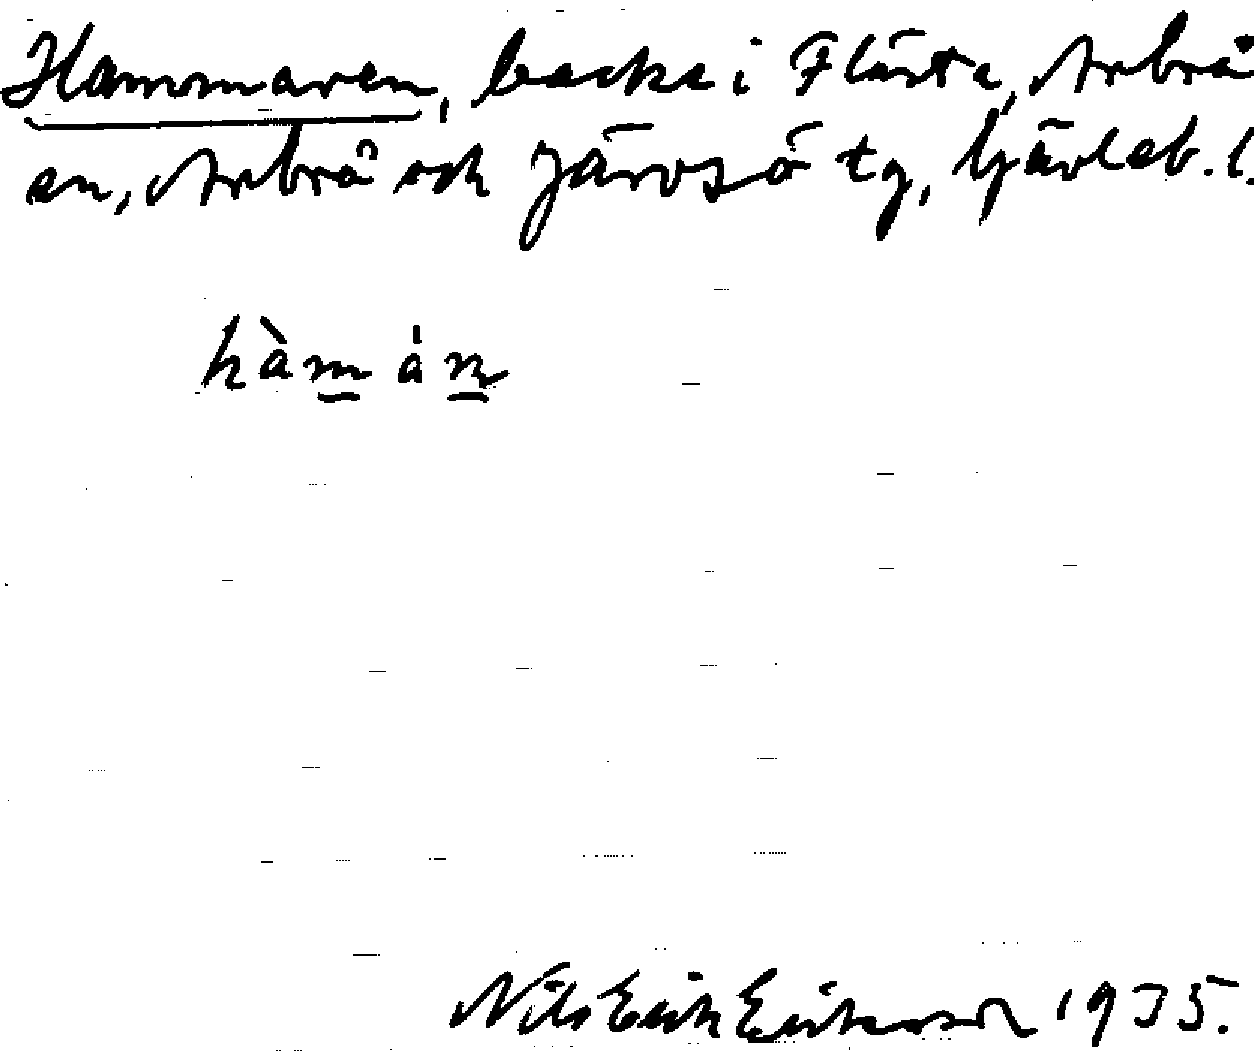 Hammaren, backe i Flästa, Arbrå
sn, Arbrå och Järvsö tg, Gävleb. l.
hàmán
Nils Erik Eriksson 1935.